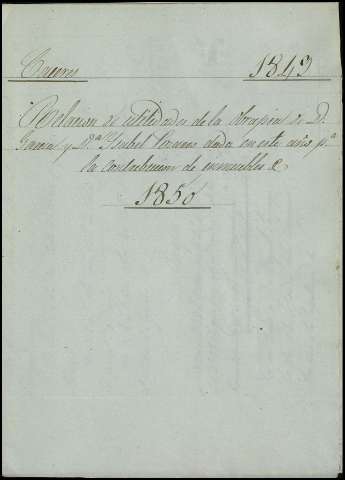 Caceres 1843
Relacion de utilidades de la obrapia de D.
Garcia y D.ª Ysabel dada en este año p.ª
la contribucion de inmuebles &
1850